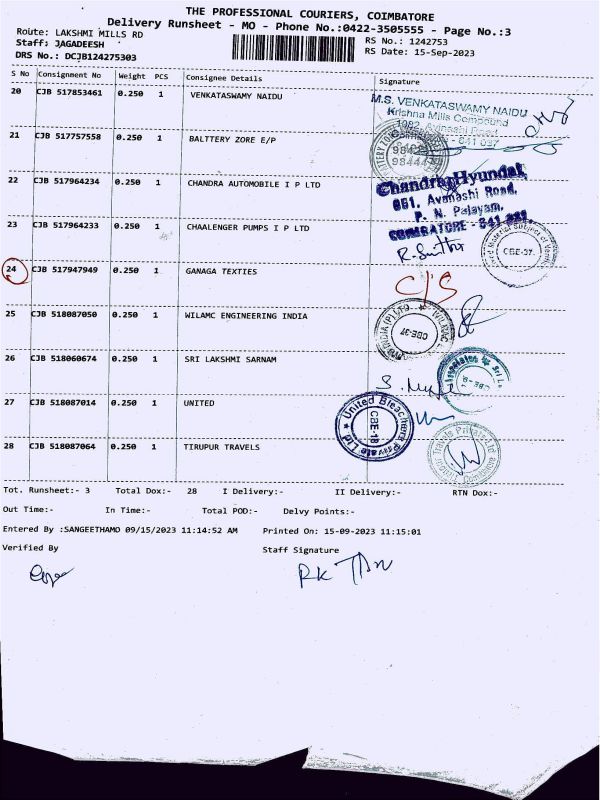 THE PROFESSIONAL COURIERS, COIMBATORE
Delivery Runsheet - MO - Phone No.:0422-3505555 - Page No.:3
Route: LAKSHMI MILLS RD
RS No.: 1242753
Staff: JAGADEESH
RS Date: 15-Sep-2023
DRS No.: DCJB124275303
S No Consignment No Weight PCS Consignee Details Signature
20 CJB 517853461 0.250 1 VENKATASWAMY NAIDU
M.S. VENKATASWAMY NAIDU
Krishna Mills Compound
1082, Avinashi Road
- 641 037
21 CJB 517757558 0.250 1 BALTTERY ZORE E/P
22 CJB 517964234 0.250 1 CHANDRA AUTOMOBILE I P LTD
Chandra Hyundai
651, Avanashi Road,
P. N. Palayam,
COIMBATORE - 641 037
23 CJB 517964233 0.250 1 CHAALENGER PUMPS I P LTD
CBE-37
24 CJB 517947949 0.250 1 GANAGA TEXTIES
C/S
25 CJB 518087050 0.250 1 WILAMC ENGINEERING INDIA
CBE-37
26 CJB 518060674 0.250 1 SRI LAKSHMI SARNAM
27 CJB 518087014 0.250 1 UNITED
United Bleachers Private Ltd
CBE-18
28 CJB 518087064 0.250 1 TIRUPUR TRAVELS
Tot. Runsheet:- 3 Total Dox:- 28 I Delivery:- II Delivery:- RTN Dox:-
Out Time:- In Time:- Total POD:- Delvy Points:-
Entered By :SANGEETHAMO 09/15/2023 11:14:52 AM Printed On: 15-09-2023 11:15:01
Verified By Staff Signature